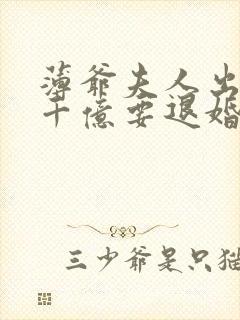 薄爷夫人出
十億要退婚
三少爷是只猫